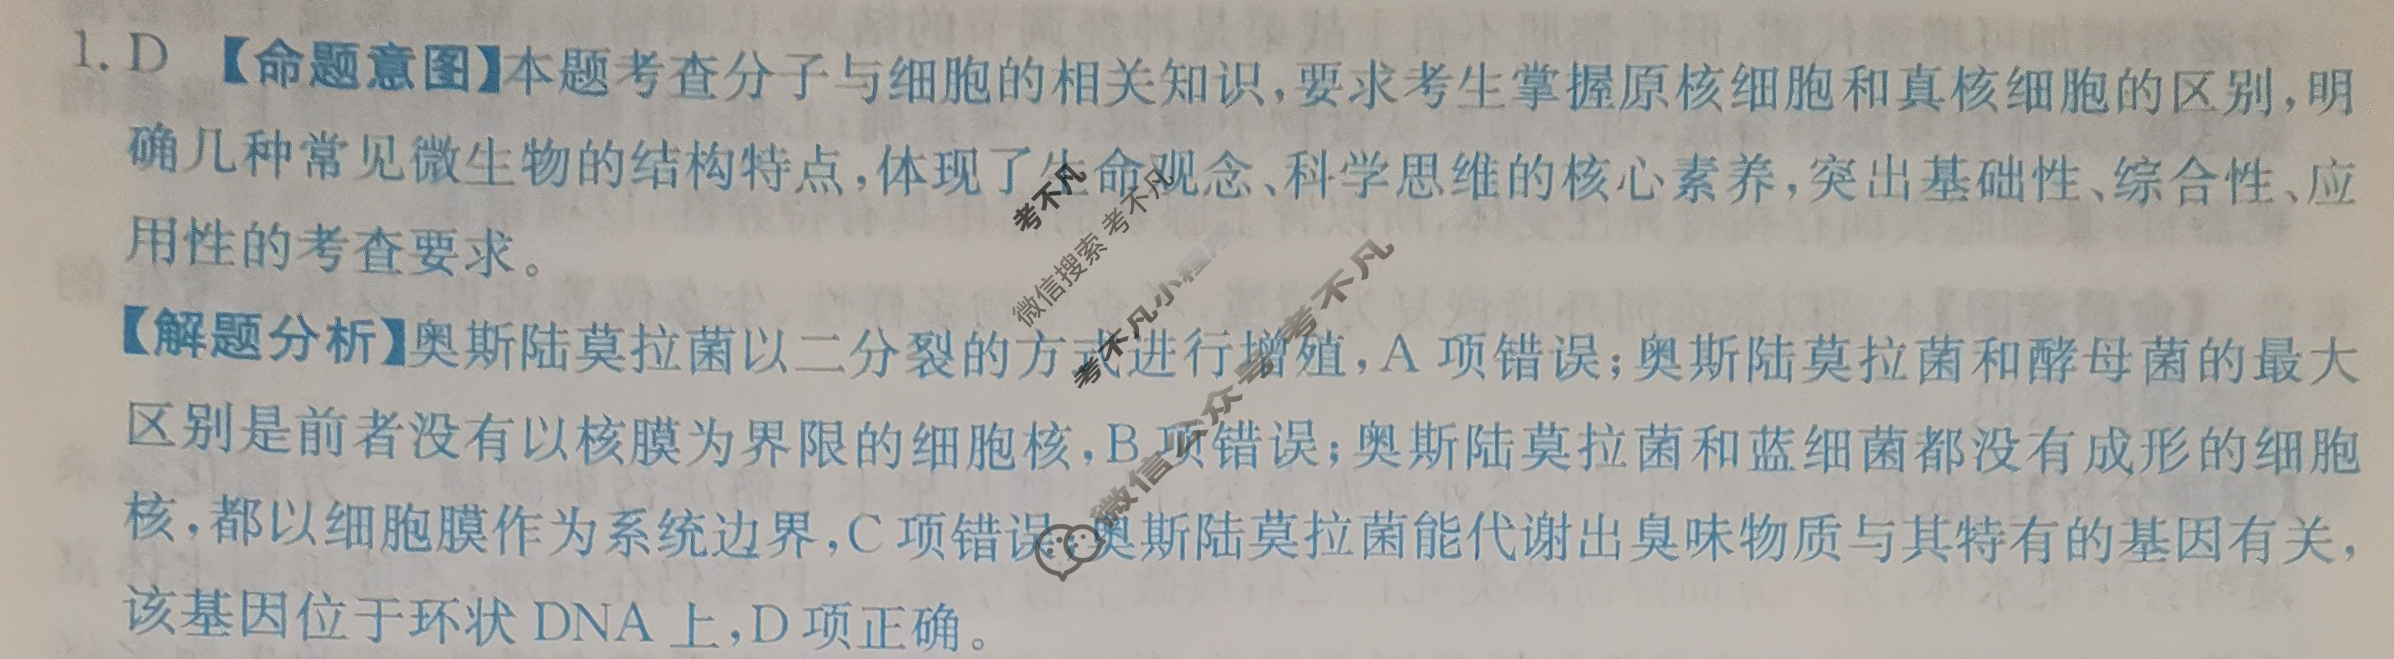 1. D 【命题意图】本题考查分子与细胞的相关知识,要求考生掌握原核细胞和真核细胞的区别,明
确几种常见微生物的结构特点,体现了生命观念、科学思维的核心素养,突出基础性、综合性、应
用性的考查要求。
【解题分析】奥斯陆莫拉菌以二分裂的方式进行增殖,A 项错误;奥斯陆莫拉菌和酵母菌的最大
区别是前者没有以核膜为界限的细胞核,B 项错误;奥斯陆莫拉菌和蓝细菌都没有成形的细胞
核,都以细胞膜作为系统边界,C 项错误;奥斯陆莫拉菌能代谢出臭味物质与其特有的基因有关,
该基因位于环状 DNA 上,D 项正确。
考不凡
微信搜索 考不凡
考不凡小程序
微信公众号 考不凡